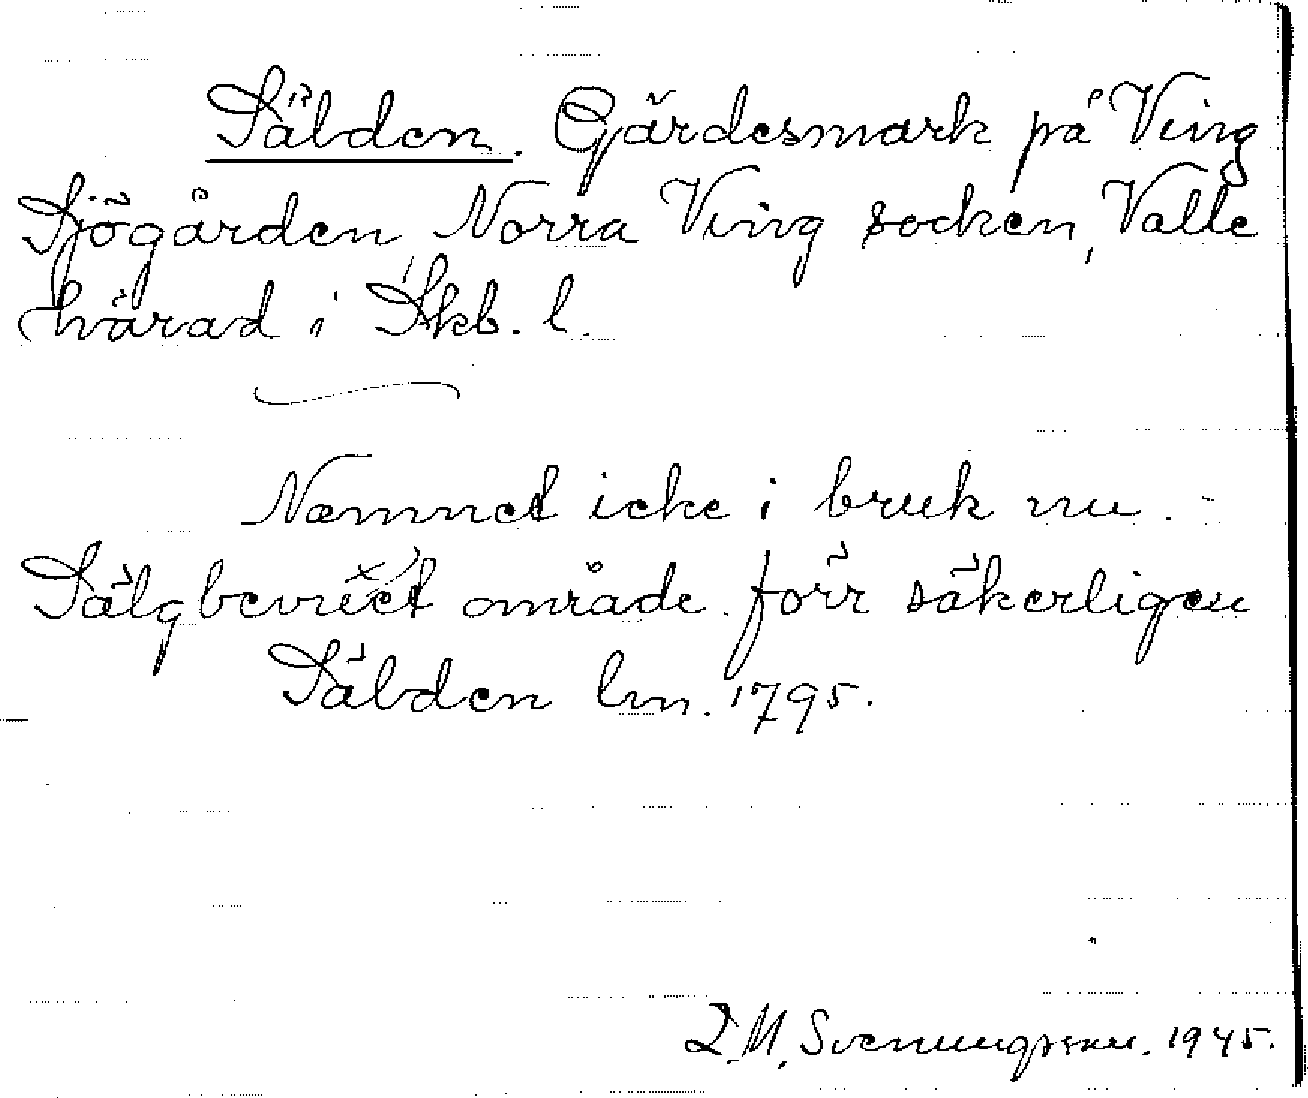 Sälden. Gärdesmark på Ving
Sjögården, Norra Ving socken, Valle
härad i Skb. l.
Namnet icke i bruk nu. -
Sälgbevuxet område förr säkerligen
Sälden lm. 1795.
Svenungsson. 1945.